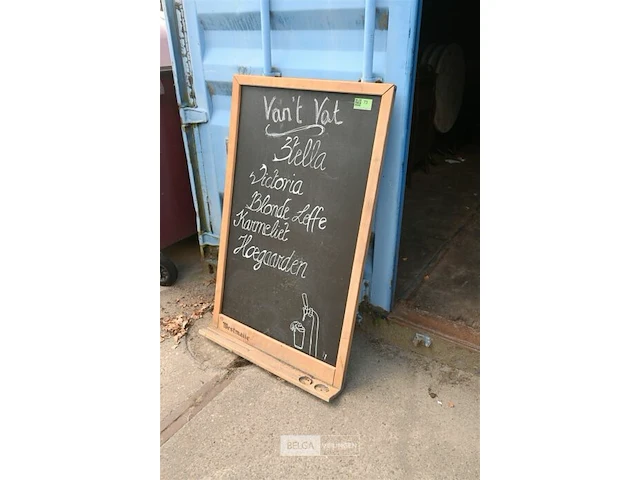 Van't Vat
Stella
Victoria
Blonde Leffe
Karmeliet
Hoegaarden
Westmalle
BELGA VEILINGEN